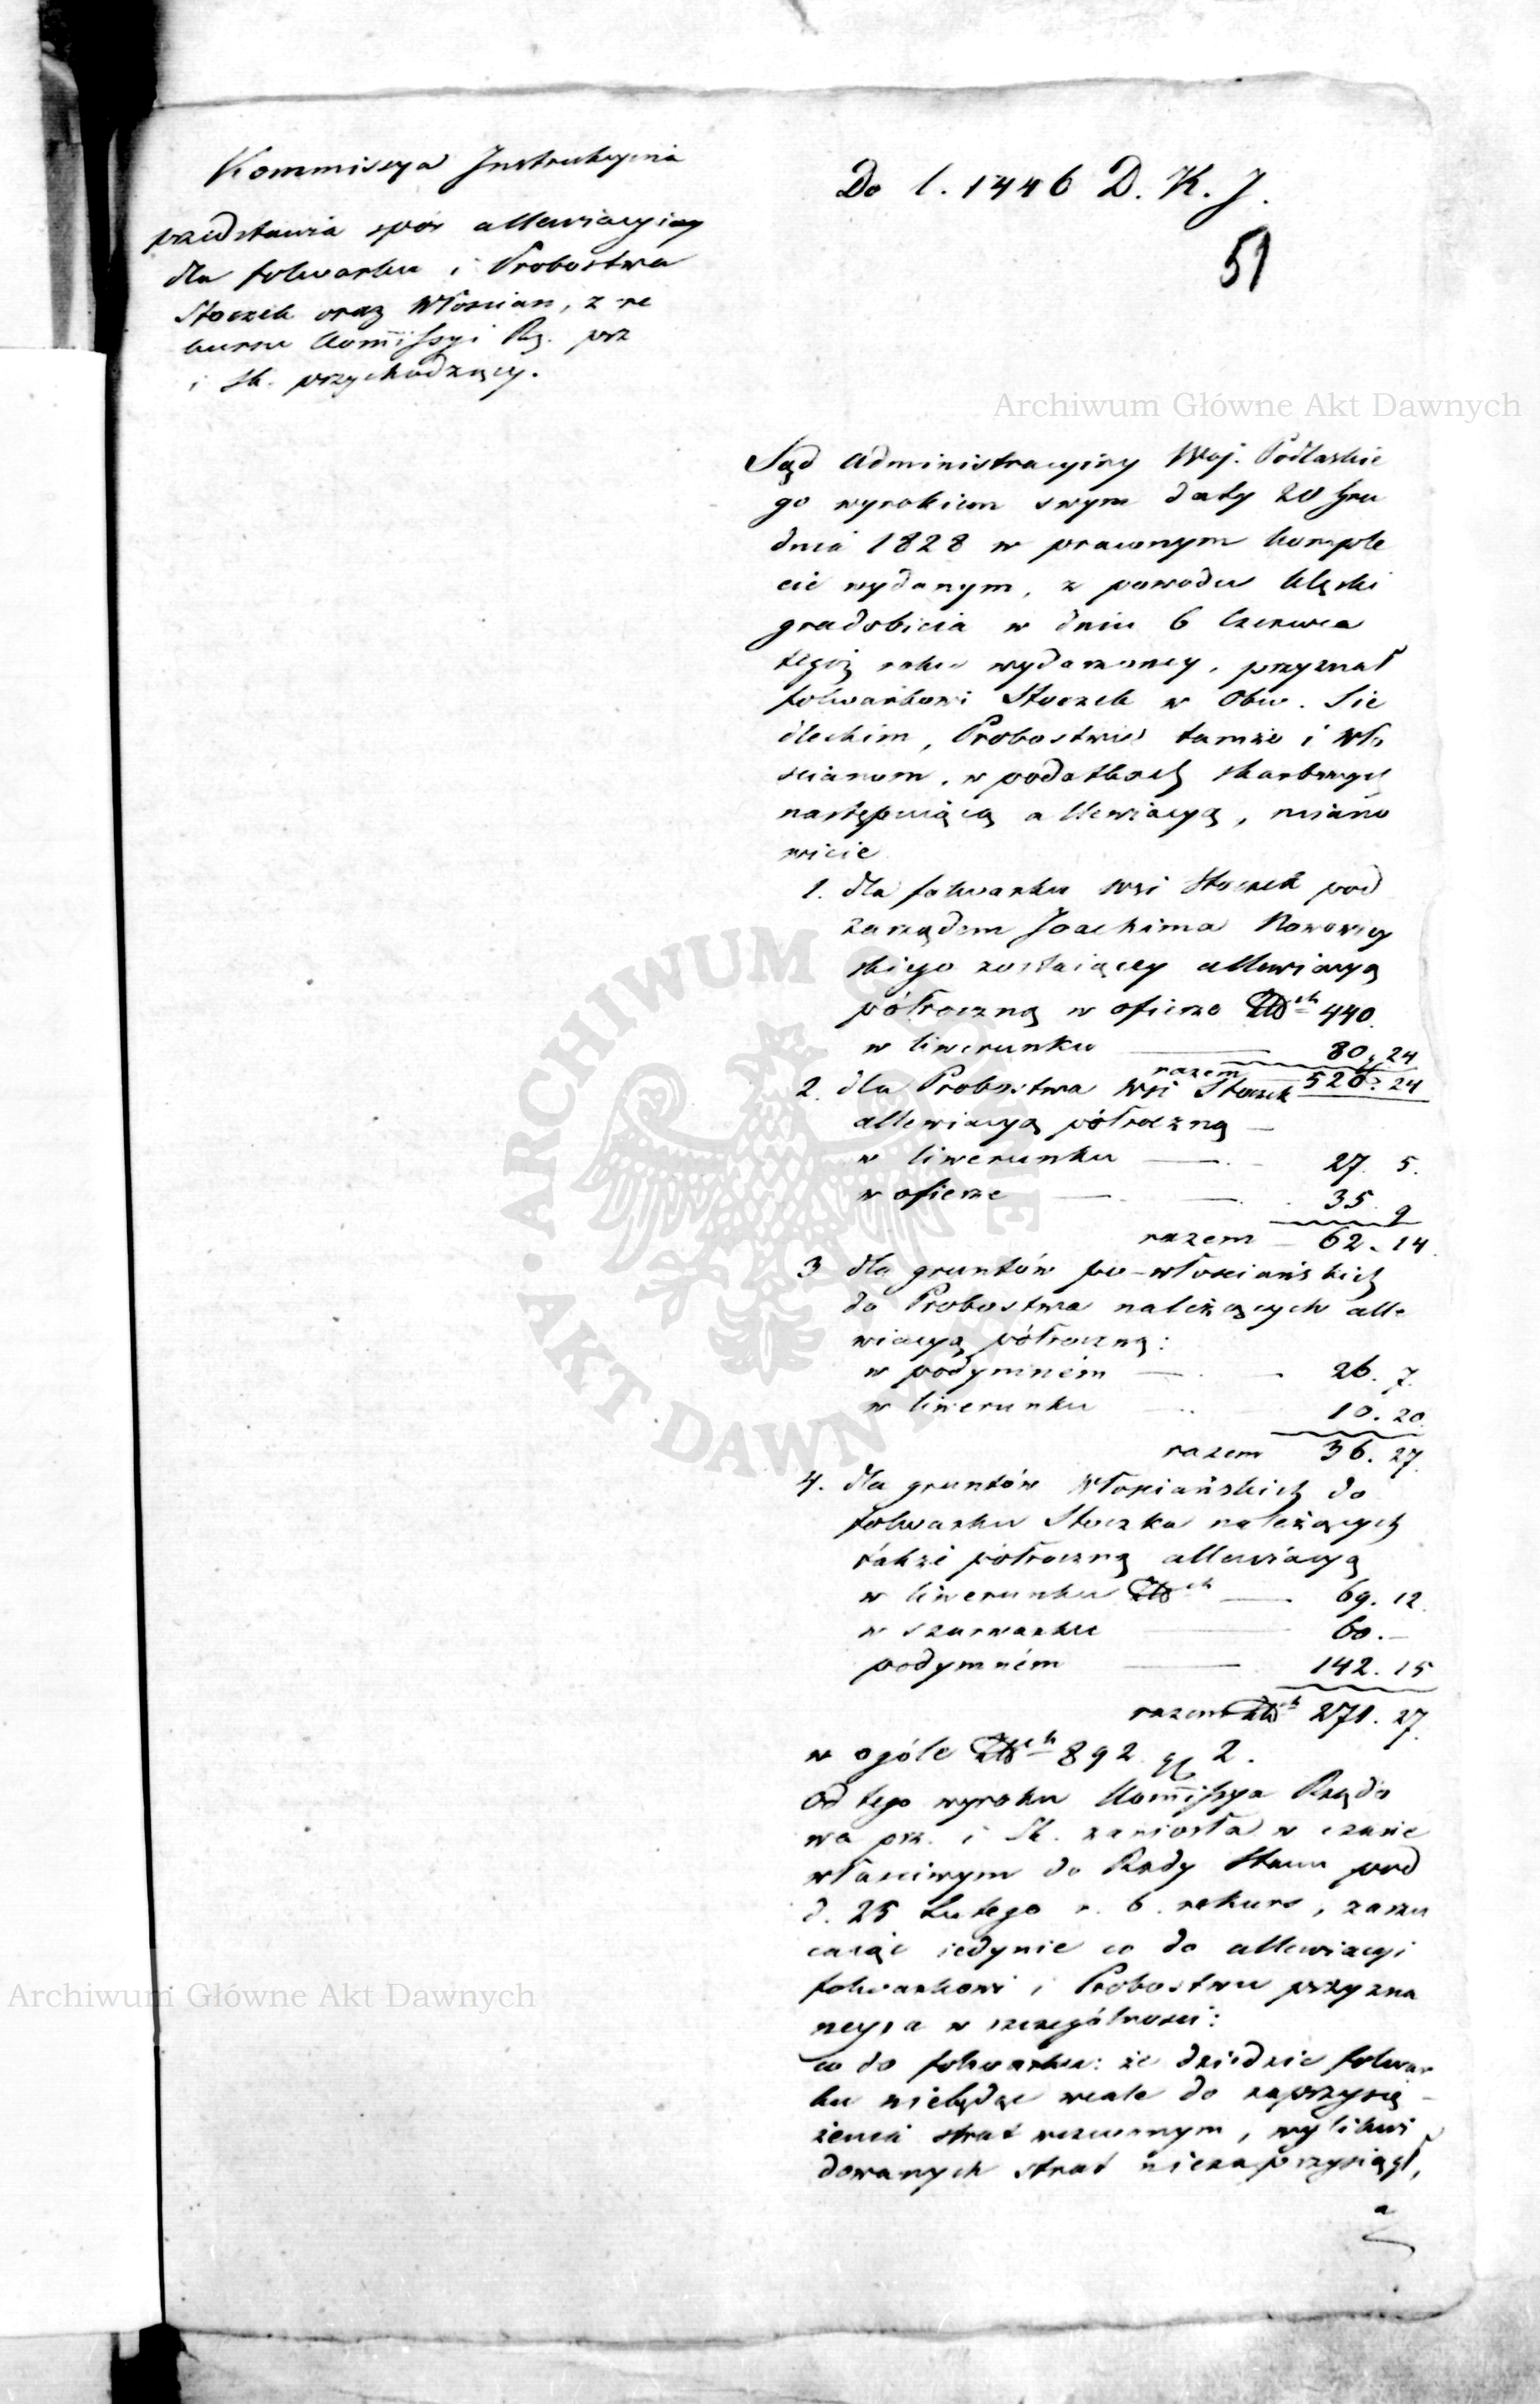 Kommissya Instrukcyina
przedstawia spór allewiacyiny
dla folwarku i Probostwa
Stoczek oraz Włościan, z re
kursu Kommissyi Rz. prz
i Sk. przychodzący.
Do l. 1446 D. K. J.
51
Archiwum Główne Akt Dawnych
Sąd Administracyiny Woj. Podlaskie
go wyrokiem swym daty 20 Gru
dnia 1828 w prawnym komple
cie wydanym, z powodu klęski
gradobicia w dniu 6 Czerwca
tegoż roku wydarzoney, przyznał
folwarkowi Stoczek w Obw. Sie
dleckim, Probostwu tamże i Wło
scianom, w podatkach skarbowych
następuiącą allewiacyą, miano
wicie
1. dla folwarku wsi Stoczek pod
zarządem Joachima
skiego zostaiącey allewiacyą
półroczną w ofierze Złch 440.
w liwerunku — 80, 24
razem 520. 24
2. dla Probostwa wsi Stoczek
allewiacyą półroczną —
w liwerunku — 27. 5.
w ofierze — 35. 9
razem — 62. 14.
3 dla gruntów po-włościańskich
do Probostwa należących alle
wiacyą półroczną:
w podymném — 26. 7.
w liwerunku 10. 20.
razem 36. 27.
4. dla gruntów Włościańskich do
folwarku Stoczka należących
także półroczną allewiacyą
w liwerunku Złch — 69. 12.
w szarwarku — 60. —
podymném — 142. 15
razem Złch 271. 27.
w ogóle Złch 892 gr 2.
Od tego wyroku Kommissya Rządo
wa prz. i Sk. zaniosła w czasie
właściwym do Rady Stanu pod
d. 25 Lutego r. b. rekurs, zarzu
caiąc iedynie co do allewiacyi
folwarkowi i Probostwu przyzna
ney, a w szczególności:
co do folwarku: że dziedzic folwar
ku niebędąc wcale do zaprzysię-
żenia strat wezwanym, wylikwi
dowanych strat niezaprzysiągł,
a
Archiwum Główne Akt Dawnych
ARCHIWUM GŁÓWNE AKT DAWNYCH